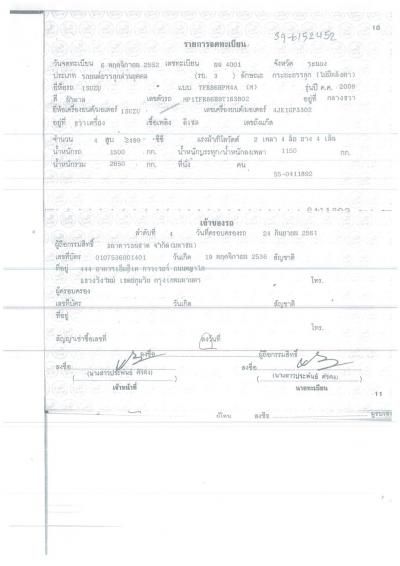 10
39-6152452
รายการจดทะเบียน
วันจดทะเบียน 6 พฤศจิกายน 2552 เลขทะเบียน 4001 จังหวัด ระนอง
ประเภท รถยนต์บรรทุกส่วนบุคคล (รย. 3) ลักษณะ กระบะบรรทุก (ไม่มีหลังคา)
ยี่ห้อรถ ISUZU แบบ TFR86HPM4A (M) รุ่นปี ค.ศ. 2009
สี เลขตัวรถ อยู่ที่ กลางขวา
ยี่ห้อเครื่องยนต์/มอเตอร์ ISUZU เลขเครื่องยนต์/มอเตอร์ 4JK1GP3302
อยู่ที่ ขวาเครื่อง เชื้อเพลิง ดีเซล เลขถังแก๊ส
จำนวน 4 สูบ 2499 ซีซี แรงม้า/กิโลวัตต์ 2 เพลา 4 ล้อ ยาง 4 เส้น
น้ำหนักรถ 1500 กก. น้ำหนักบรรทุก/น้ำหนักลงเพลา 1150 กก.
น้ำหนักรวม 2650 กก. ที่นั่ง คน
55-0411892
เจ้าของรถ
ลำดับที่ 4 วันที่ครอบครองรถ 24 กันยายน 2561
ผู้ถือกรรมสิทธิ์ ธนาคารธนชาต จำกัด (มหาชน)
เลขที่บัตร 0107536001401 วันเกิด 19 พฤศจิกายน 2536 สัญชาติ
ที่อยู่ 444
แขวงวังใหม่ เขตปทุมวัน กรุงเทพมหานคร โทร.
ผู้ครอบครอง
เลขที่บัตร วันเกิด สัญชาติ
ที่อยู่
โทร.
สัญญาเช่าซื้อเลขที่ ลงวันที่
ลงชื่อ ผู้ถือกรรมสิทธิ์
ลงชื่อ ลงชื่อ
เจ้าหน้าที่ นายทะเบียน
11
ลงชื่อ